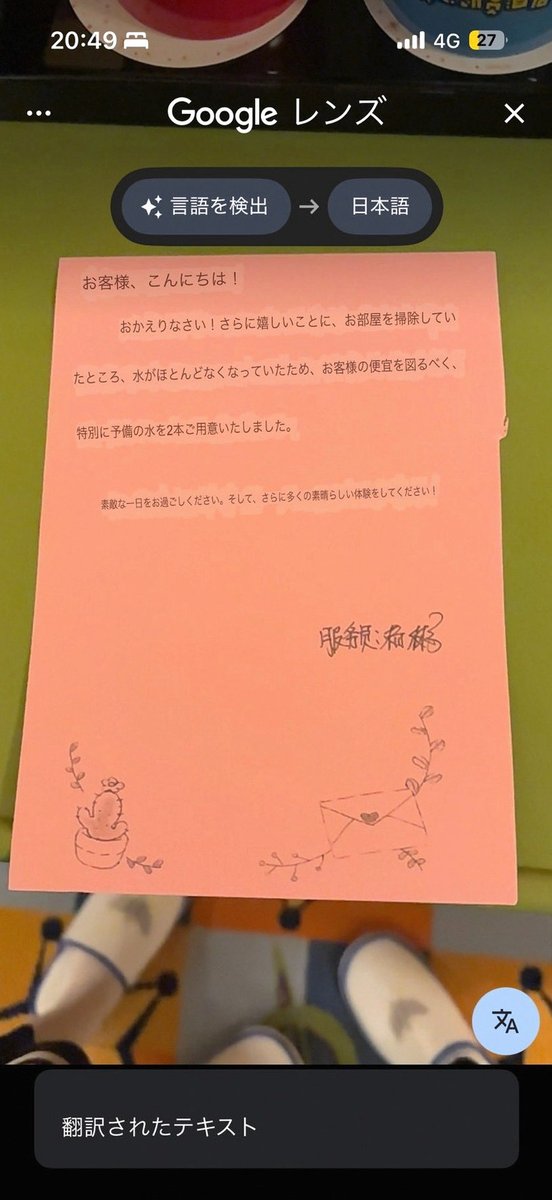 20:49
4G
27
Google レンズ
言語を検出 → 日本語
お客様、こんにちは！
おかえりなさい！さらに嬉しいことに、お部屋を掃除してい
たところ、水がほとんどなくなっていたため、お客様の便宜を図るべく、
特別に予備の水を2本ご用意いたしました。
素敵な一日をお過ごしください。そして、さらに多くの素晴らしい体験をしてください！
翻訳されたテキスト